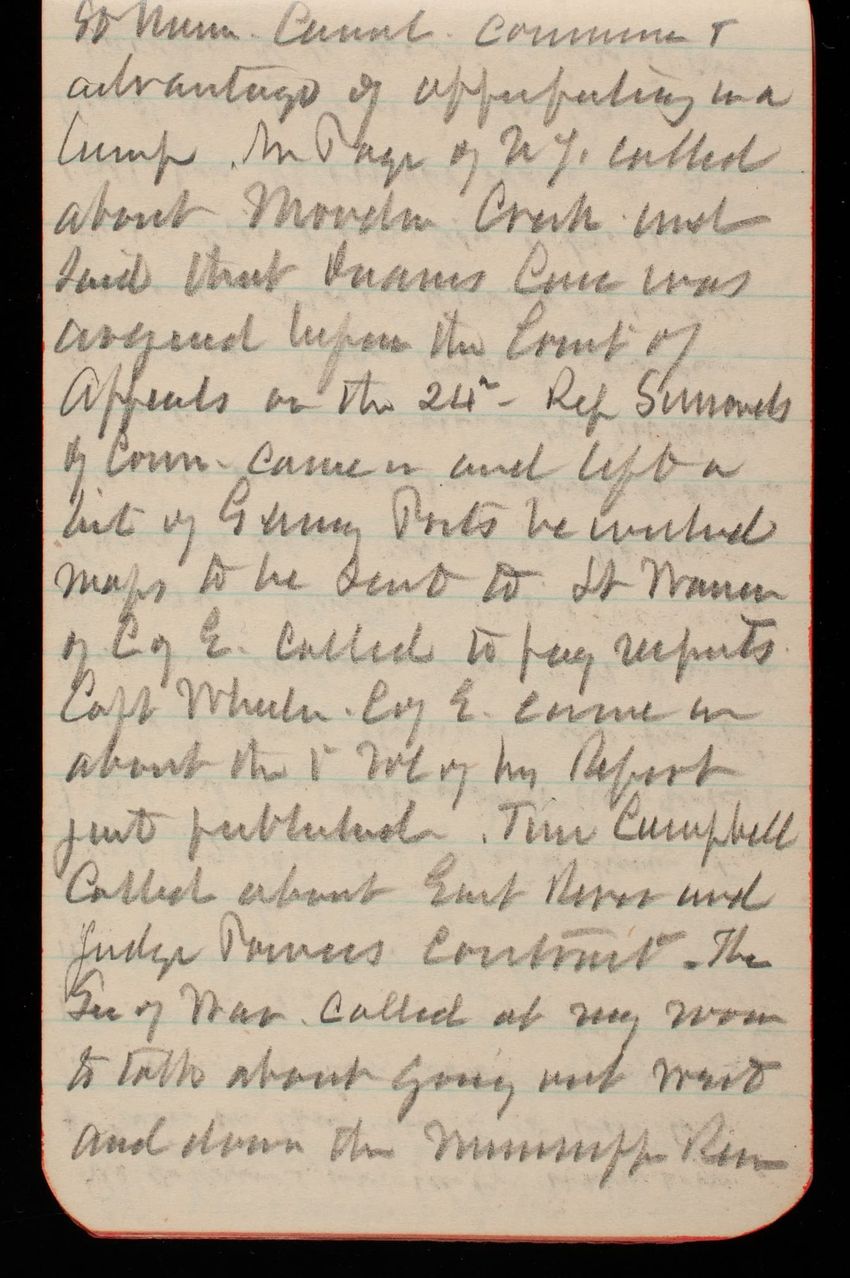 Canal. Commn &
advantage of appropriating in a
lump. Mr Page of N.Y. called
about Creek and
said that Case was
argued before the Court of
Appeals on the 24" - Rep Simonds
of Conn. came in and left a
list of Grang Posts he wished
maps to be sent to Lt Warren
of C of E. called to pay respects.
Capt Wheeler. C of E. came in
about the Vol of his Report
just published. Tim Campbell
Called about East River and
Judge Powers contract. The
Sec of War. called at my room
to talk about going out West
and down the Mississipp River